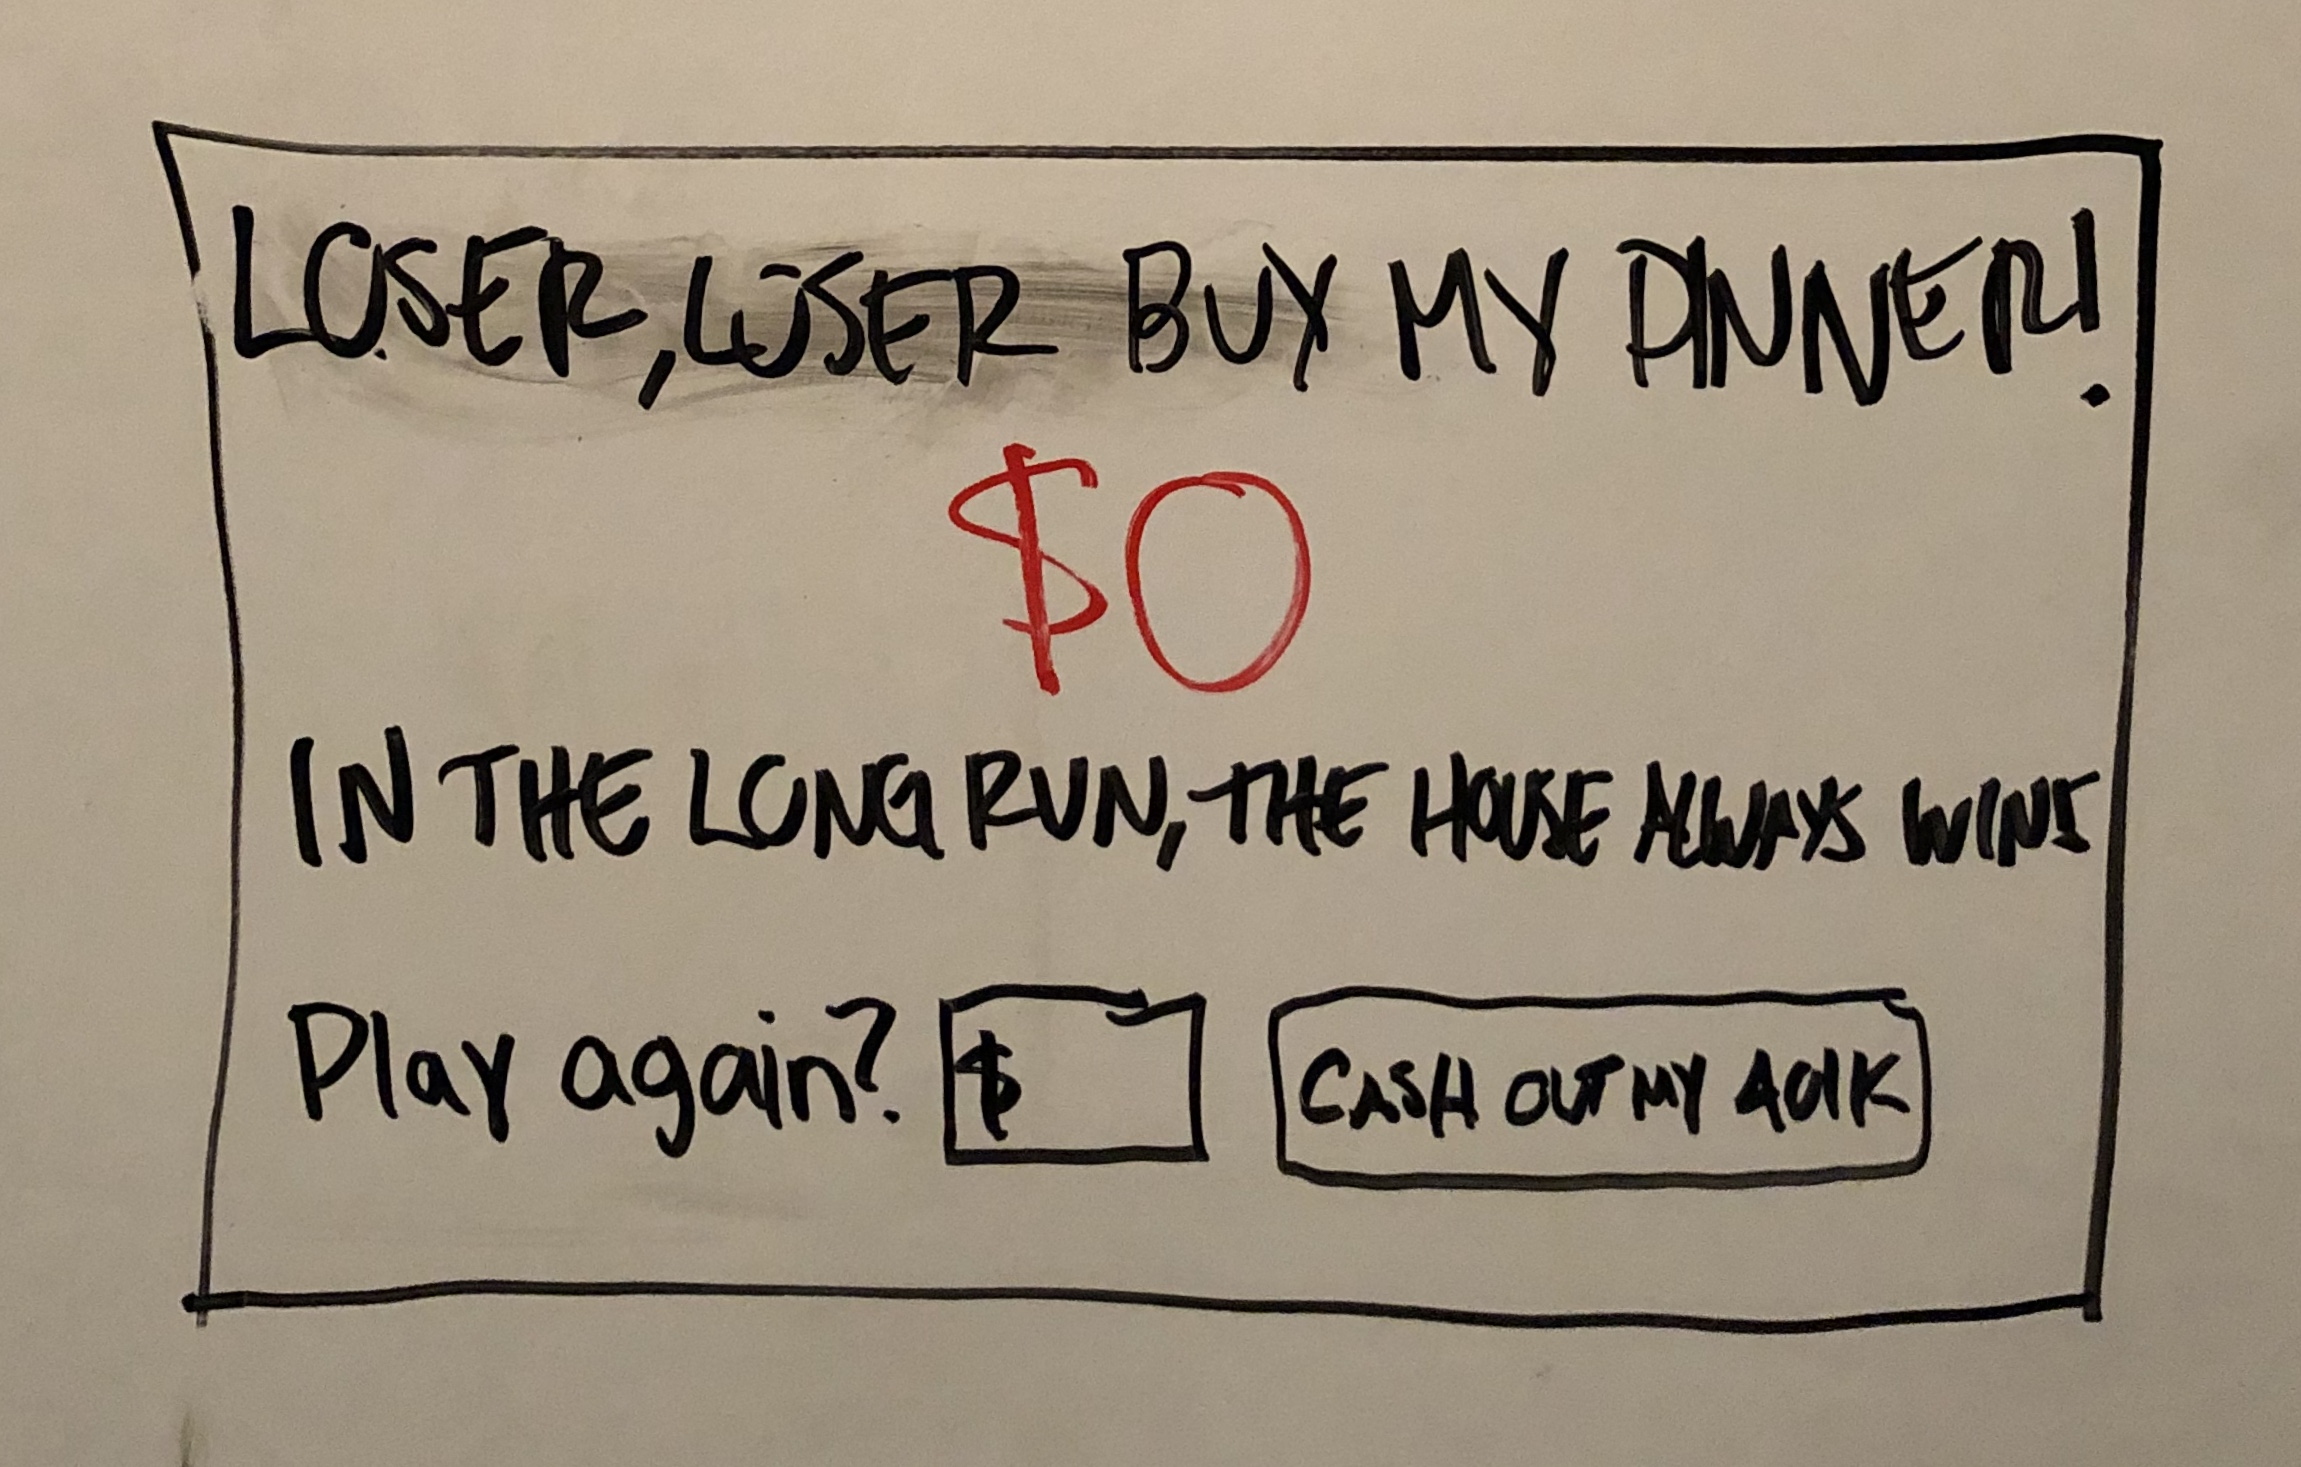 LOSER, LOSER BUY MY DINNER!
$0
IN THE LONG RUN, THE HOUSE ALWAYS WINS
Play again? $ CASH OUT MY 401K